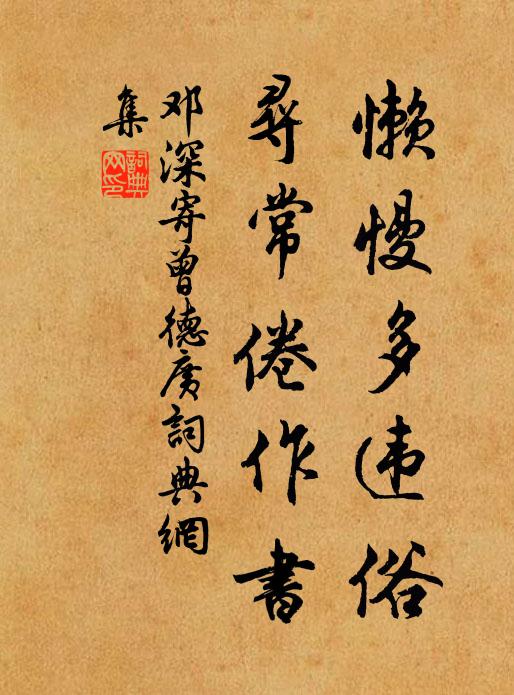 懒慢多违俗
寻常倦作书
邓深寄曾德广词典網
集
詞典
网印